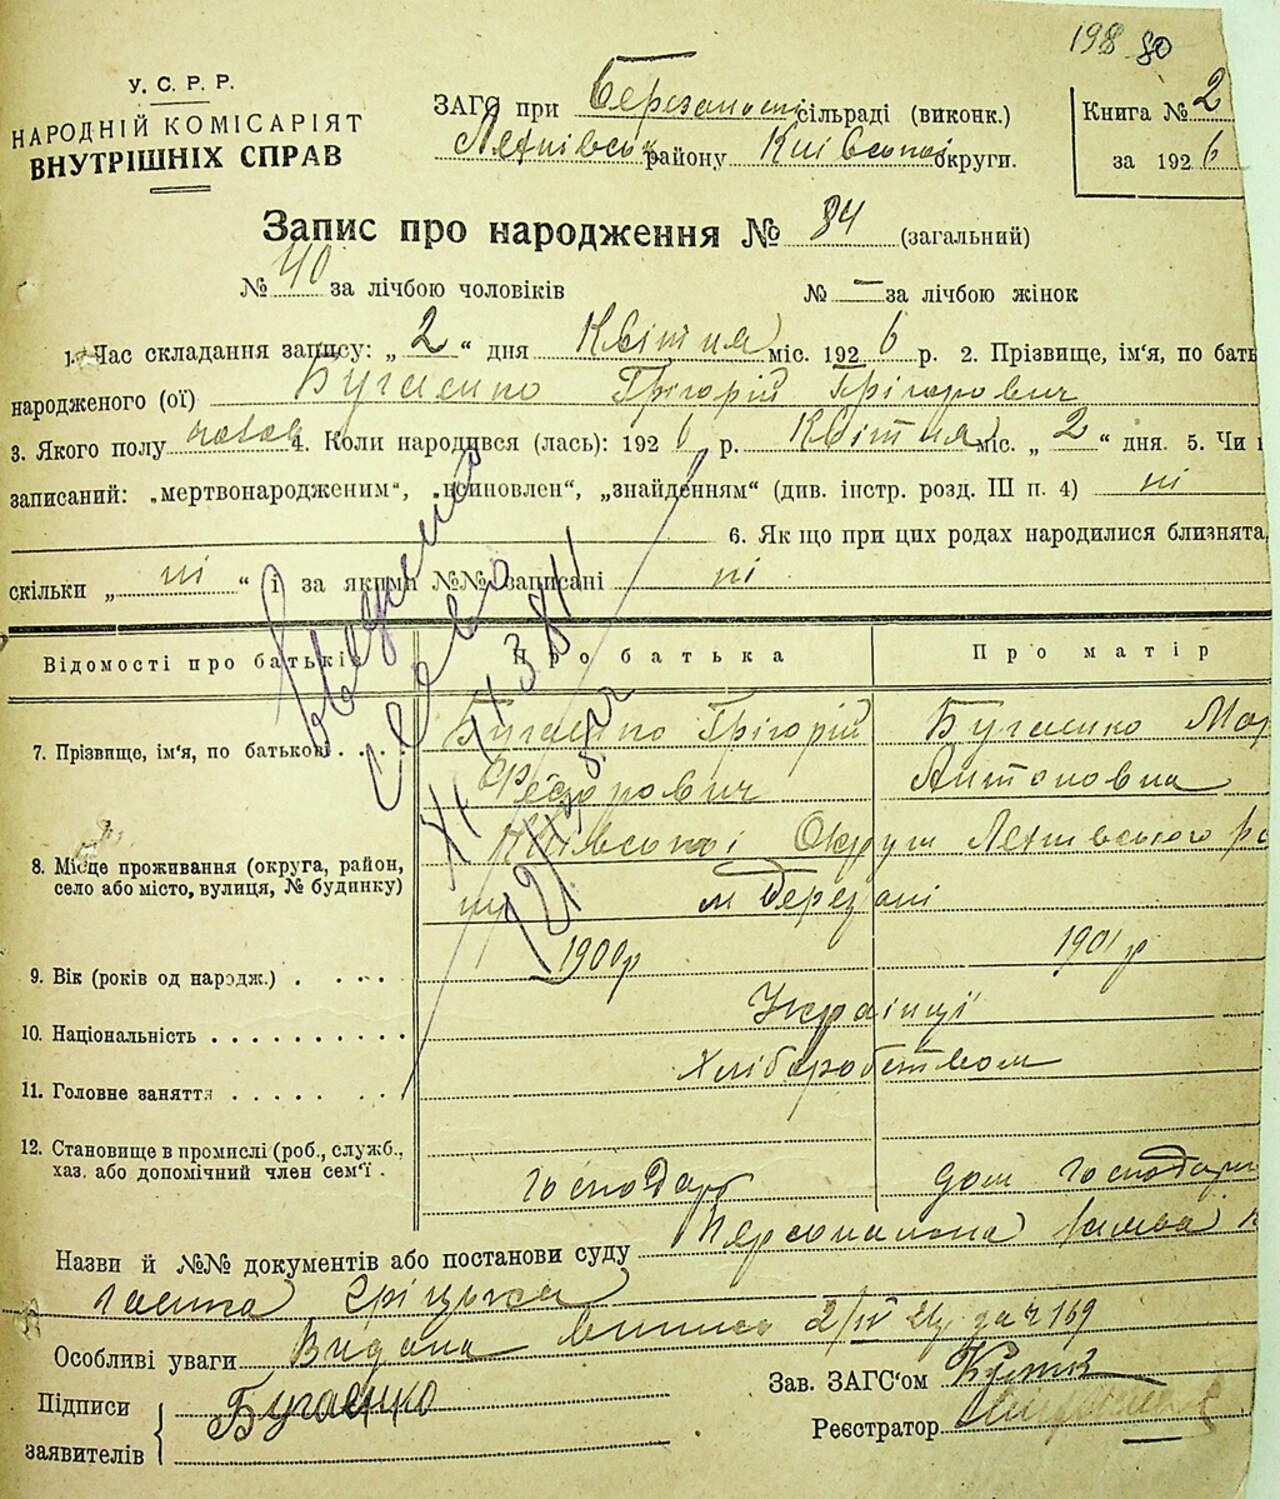 198 80
У. С. Р. Р.
НАРОДНІЙ КОМІСАРІЯТ
ВНУТРІШНІХ СПРАВ
ЗАГС при Березанські сільраді (виконк.)
району Київської округи.
Книга № 2
за 1926
Запис про народження № 84 (загальний)
№ 40 за лічбою чоловіків № — за лічбою жінок
1. Час складання запису: „ 2 “ дня Квітня міс. 1926 р. 2. Прізвище, ім‘я, по бать
народженого (ої) Бугаенко Грігорій Грігорович
3. Якого полу чолов 4. Коли народився (лась): 1926 р. Квітня міс. „ 2 “ дня. 5. Чи
записаний: „мертвонародженим“, „всиновлен“, „знайденням“ (див. інстр. розд. III п. 4) ні
6. Як що при цих родах народилися близнята,
скільки „ ні “ і за якими №№ записані ні
Відомості про батьків Про батька Про матір
7. Прізвище, ім‘я, по батькові . . . . Бугаенко Грігорій Бугаенко Мар
Федорович Антоновна
8. Місце проживання (округа, район, Київської Округи
село або місто, вулиця, № будинку) м Березані
9. Вік (років од народж.) . . . . 1900р 1901р
10. Національність . . . . . . . . . . Українці
11. Головне заняття . . . . . . . Хліборобством
12. Становище в промислі (роб., служб.,
хаз. або допомічний член сем‘ї . Господар дом Господарк
Назви й №№ документів або постанови суду Персональна заява
Гріцька
Особливі уваги Видана 2/IV 169
Підписи Бугаенко
заявителів
Зав. ЗАГС‘ом
Реєстратор